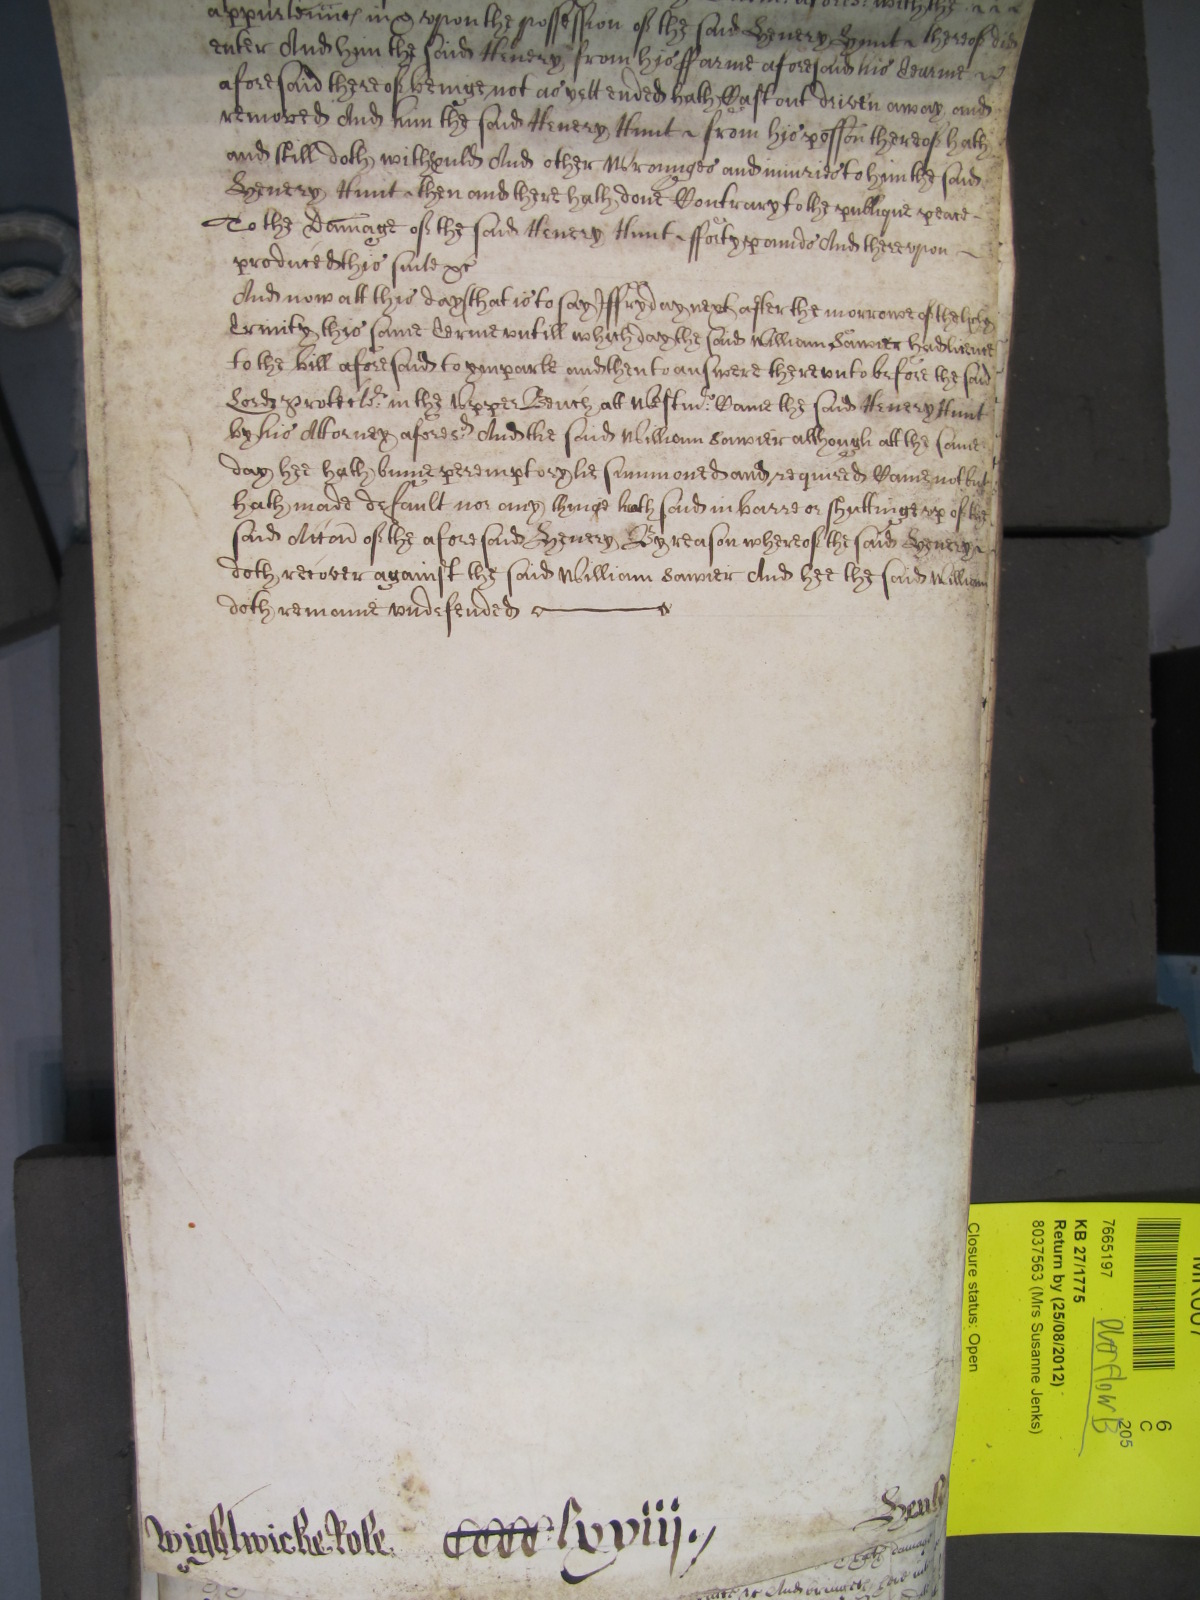 appurtennc̃ in & vpon the possession of the said Henery Hunt thereof did
enter And him the said Henery from his ffarme aforesaid his Tearme
aforesaid thereof beinge not as yett ended hath Cast out driven away and
removed And him the said Henery Hunt from his possõn thereof hath
and still doth withhould And other Wrounges and iniuries to him the said
Henery Hunt then and there hath done Contrary to the publique peace
To the Damage of the said Henery Hunt fforty pounds And therevpon
produceth this suite &c
And now att this day (that is to say) ffryday next after the morrowe of the holy
Trinity this same Terme vntill which day the said William Sawier had licence
to the bill aforesaid to ymparle and then to answere therevnto before the said
Lord Protectr in the Vpper Bench att Westmr Came the said Henery Hunt
by his Attorney aforesd And the said William Sawier although att the same
day hee hath binne peremptorylie summoned and required Came not but
hath made default nor any thinge hath said in barre or shuttinge vp of the
said Accon of the aforesaid Henery By reason whereof the said Henery
doth recover against the said William Sawier And hee the said William
doth remaine vndefended
Wightwicke Role CCCC lxviij
MR007
6
C
205
7665197
Overflow B
KB 27/1775
Return by (25/08/2012)
8037563 (Mrs Susanne Jenks)
Closure status: Open